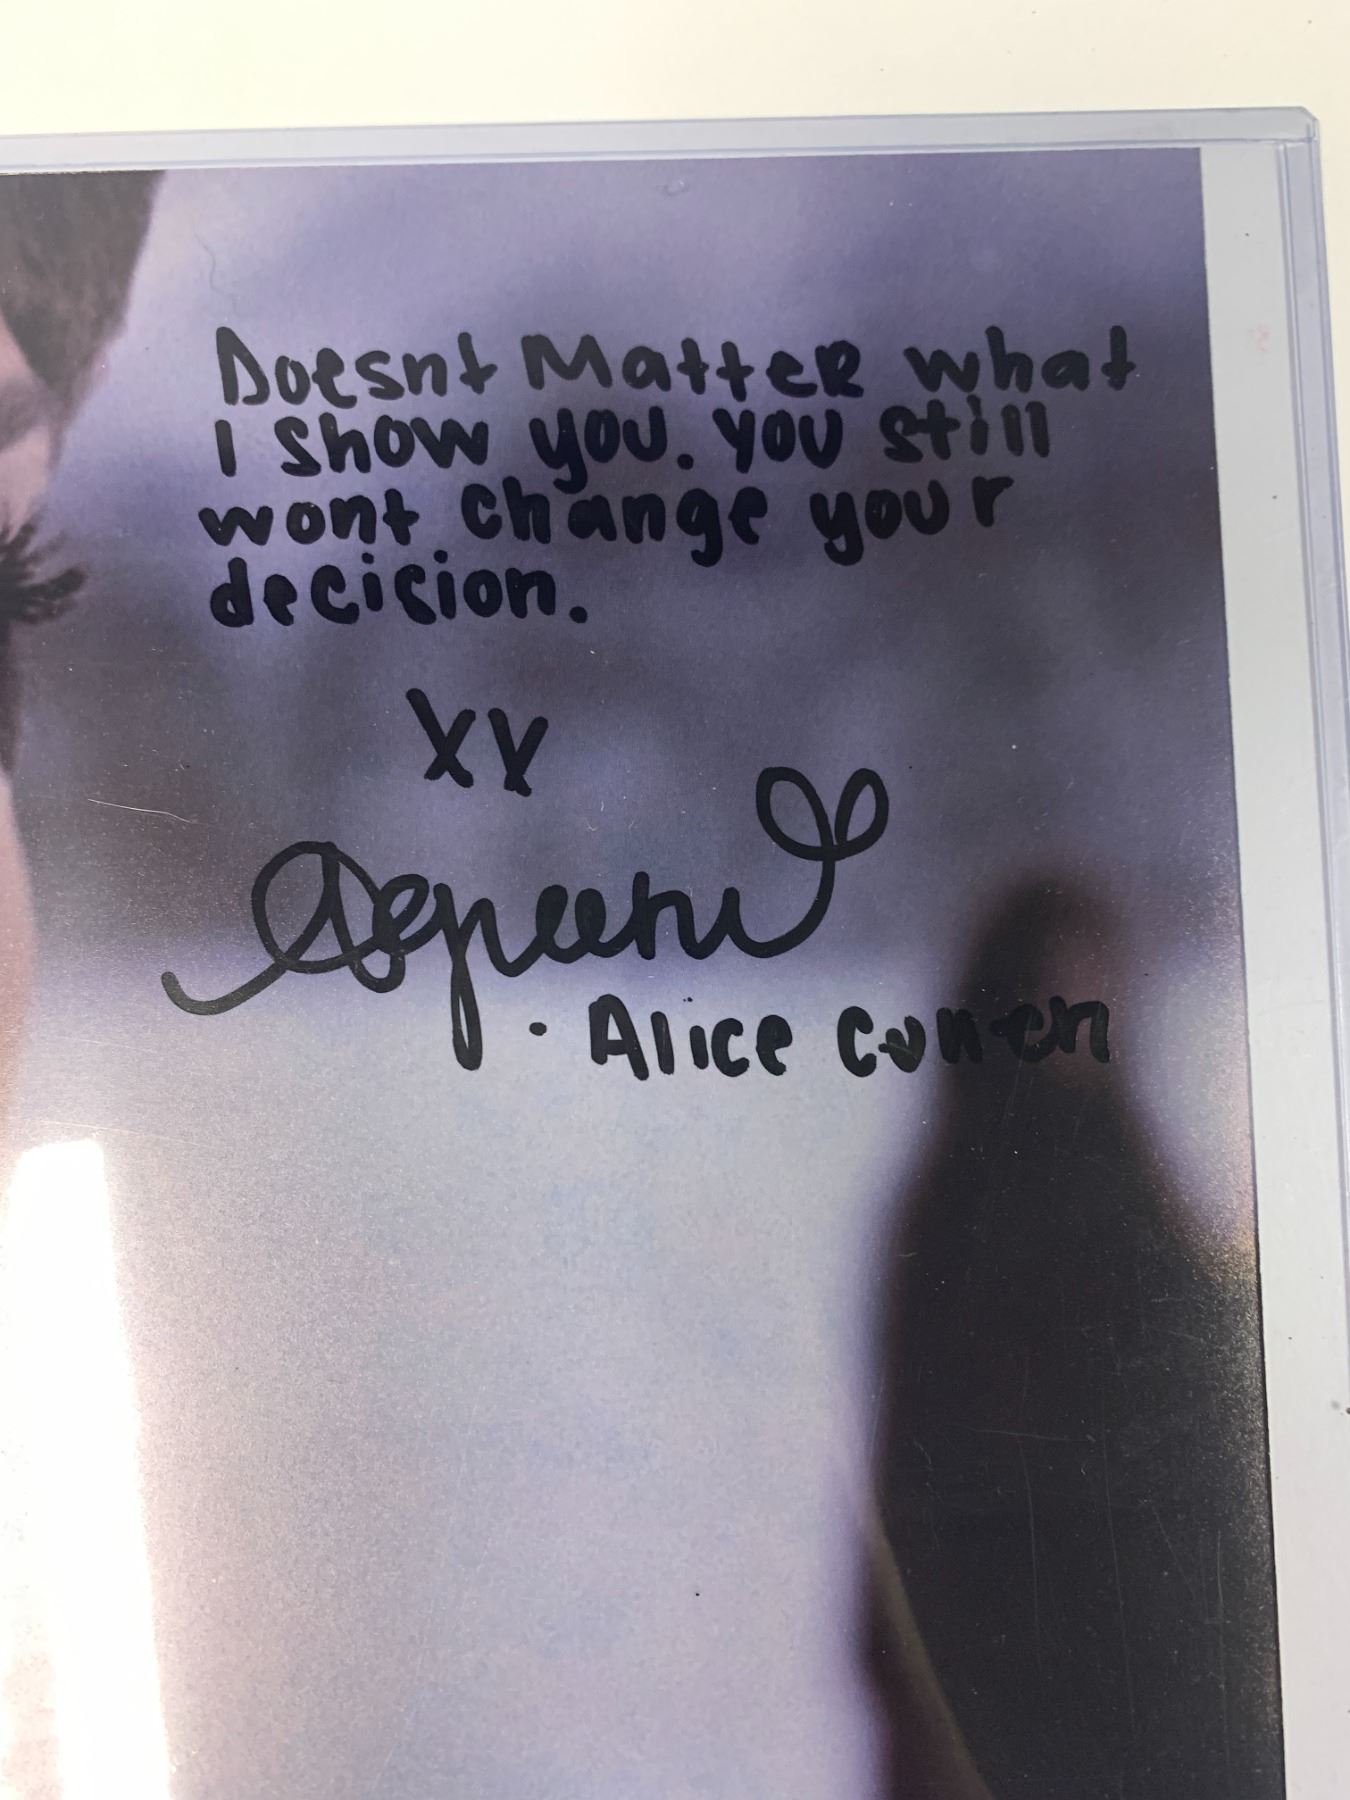 Doesnt Matter what
I show you. you still
wont change your
decision.
xx
Agreene
. Alice Cullen